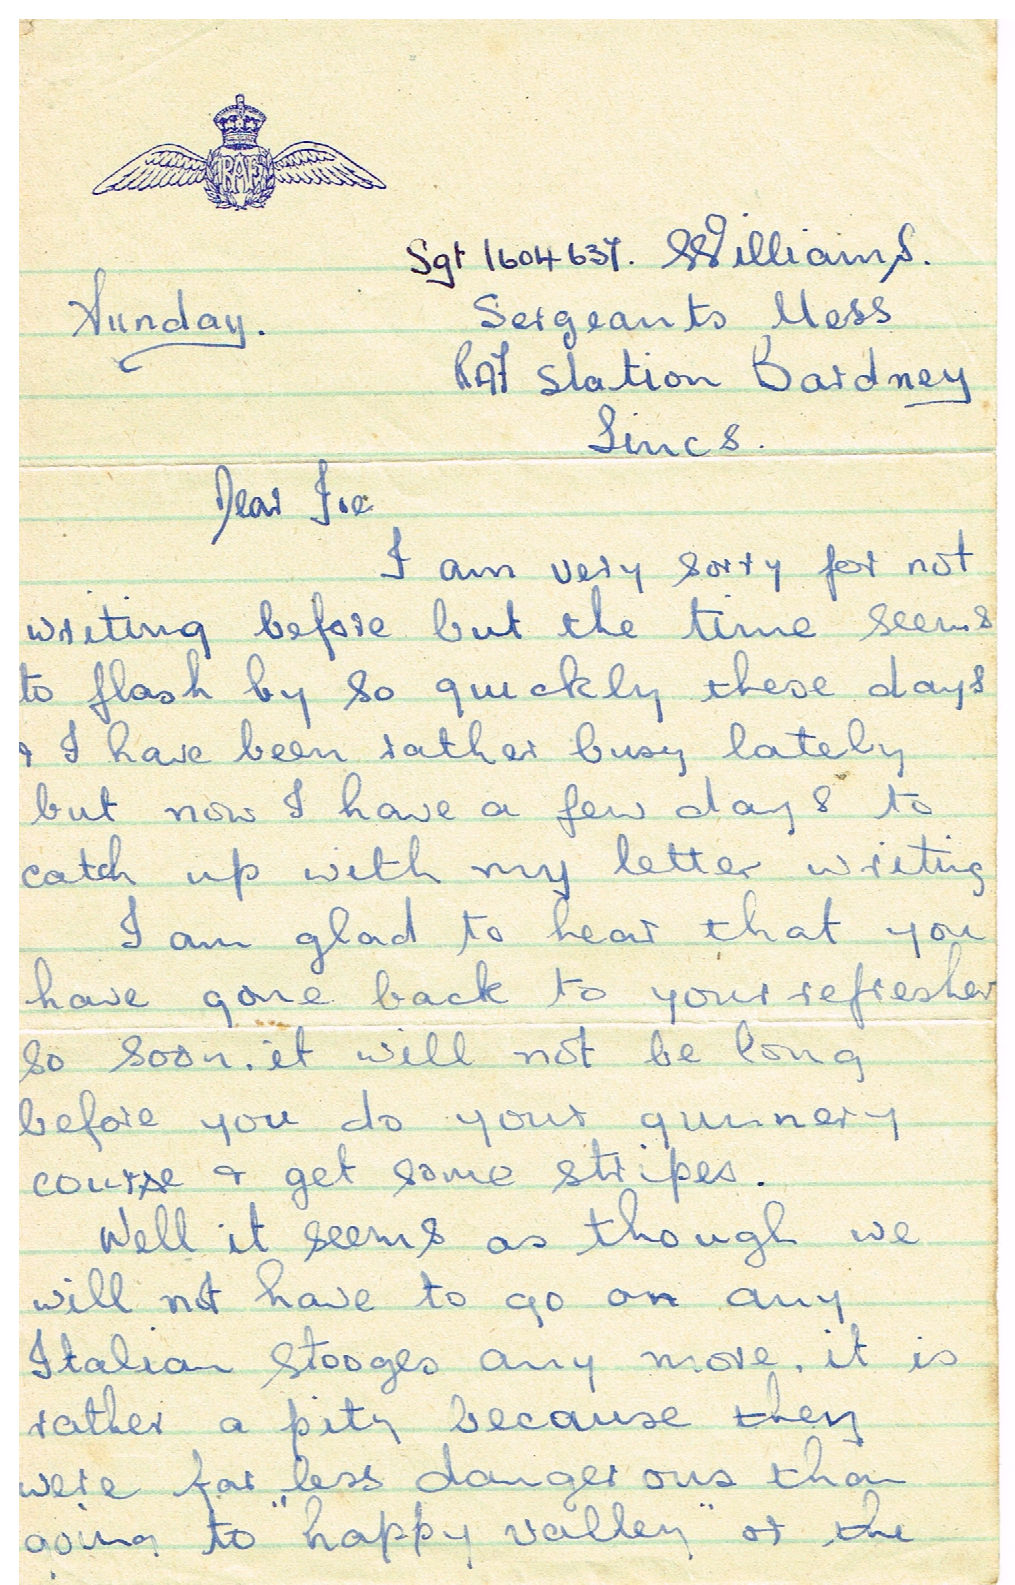 RAF
Sgt 1604637. Williams.
Sunday.
Sergeants Mess
RAF Station Bardney
Lincs.
Dear Joe
I am very sorry for not
writing before but the time seems
to flash by so quickly these days
& I have been rather busy lately
but now I have a few days to
catch up with my letter writing
I am glad to hear that you
have gone back to your refresher
so soon. it will not be long
before you do your gunnery
course & get some stripes.
Well it seems as though we
will not have to go on any
Italian stooges any more, it is
rather a pity because they
were far less dangerous than
going to "happy valley" or the